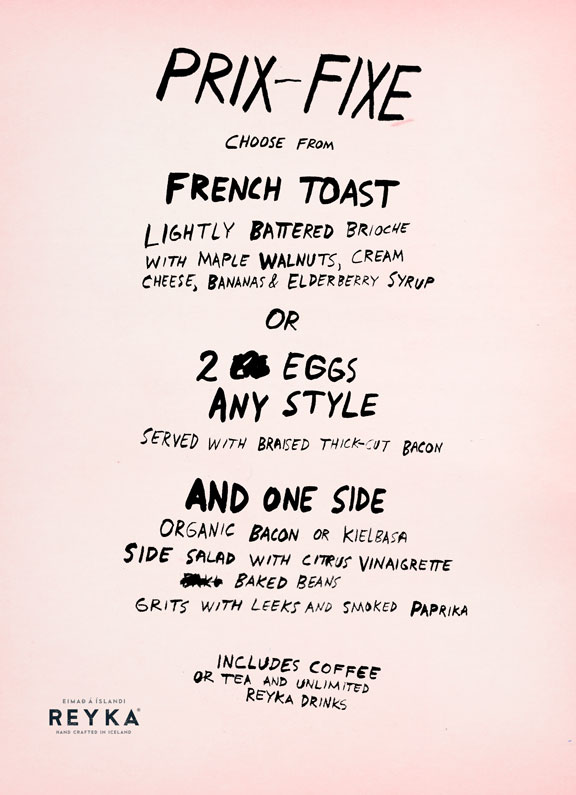 PRIX-FIXE
CHOOSE FROM
FRENCH TOAST
LIGHTLY BATTERED BRIOCHE
WITH MAPLE WALNUTS, CREAM
CHEESE, BANANAS & ELDERBERRY SYRUP
OR
2 EGGS
ANY STYLE
SERVED WITH BRAISED THICK-CUT BACON
AND ONE SIDE
ORGANIC BACON OR KIELBASA
SIDE SALAD WITH CITRUS VINAIGRETTE
BAKED BEANS
GRITS WITH LEEKS AND SMOKED PAPRIKA
INCLUDES COFFEE
OR TEA AND UNLIMITED
REYKA DRINKS
EIMAÐ Á ÍSLANDI
REYKA®
HAND CRAFTED IN ICELAND